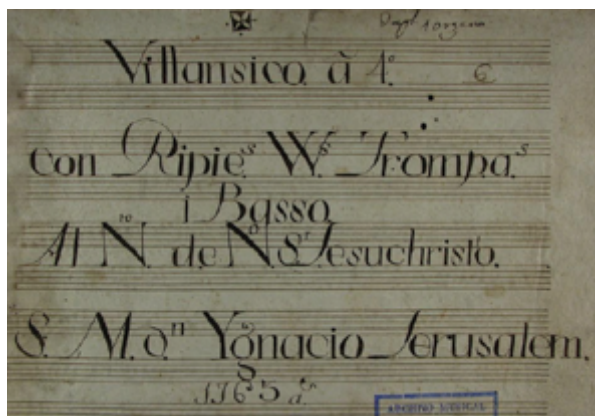 Dupdo. 1 organ
Villansico. à 4.º
6
Con Ripie.s W.s Trompa.s
i Basso.
Al N.to de N.o S.r Jesuchristo.
S. M. d.n Ygnacio Jerusalem.
1765 a.s
ARCHIVO MUSICAL